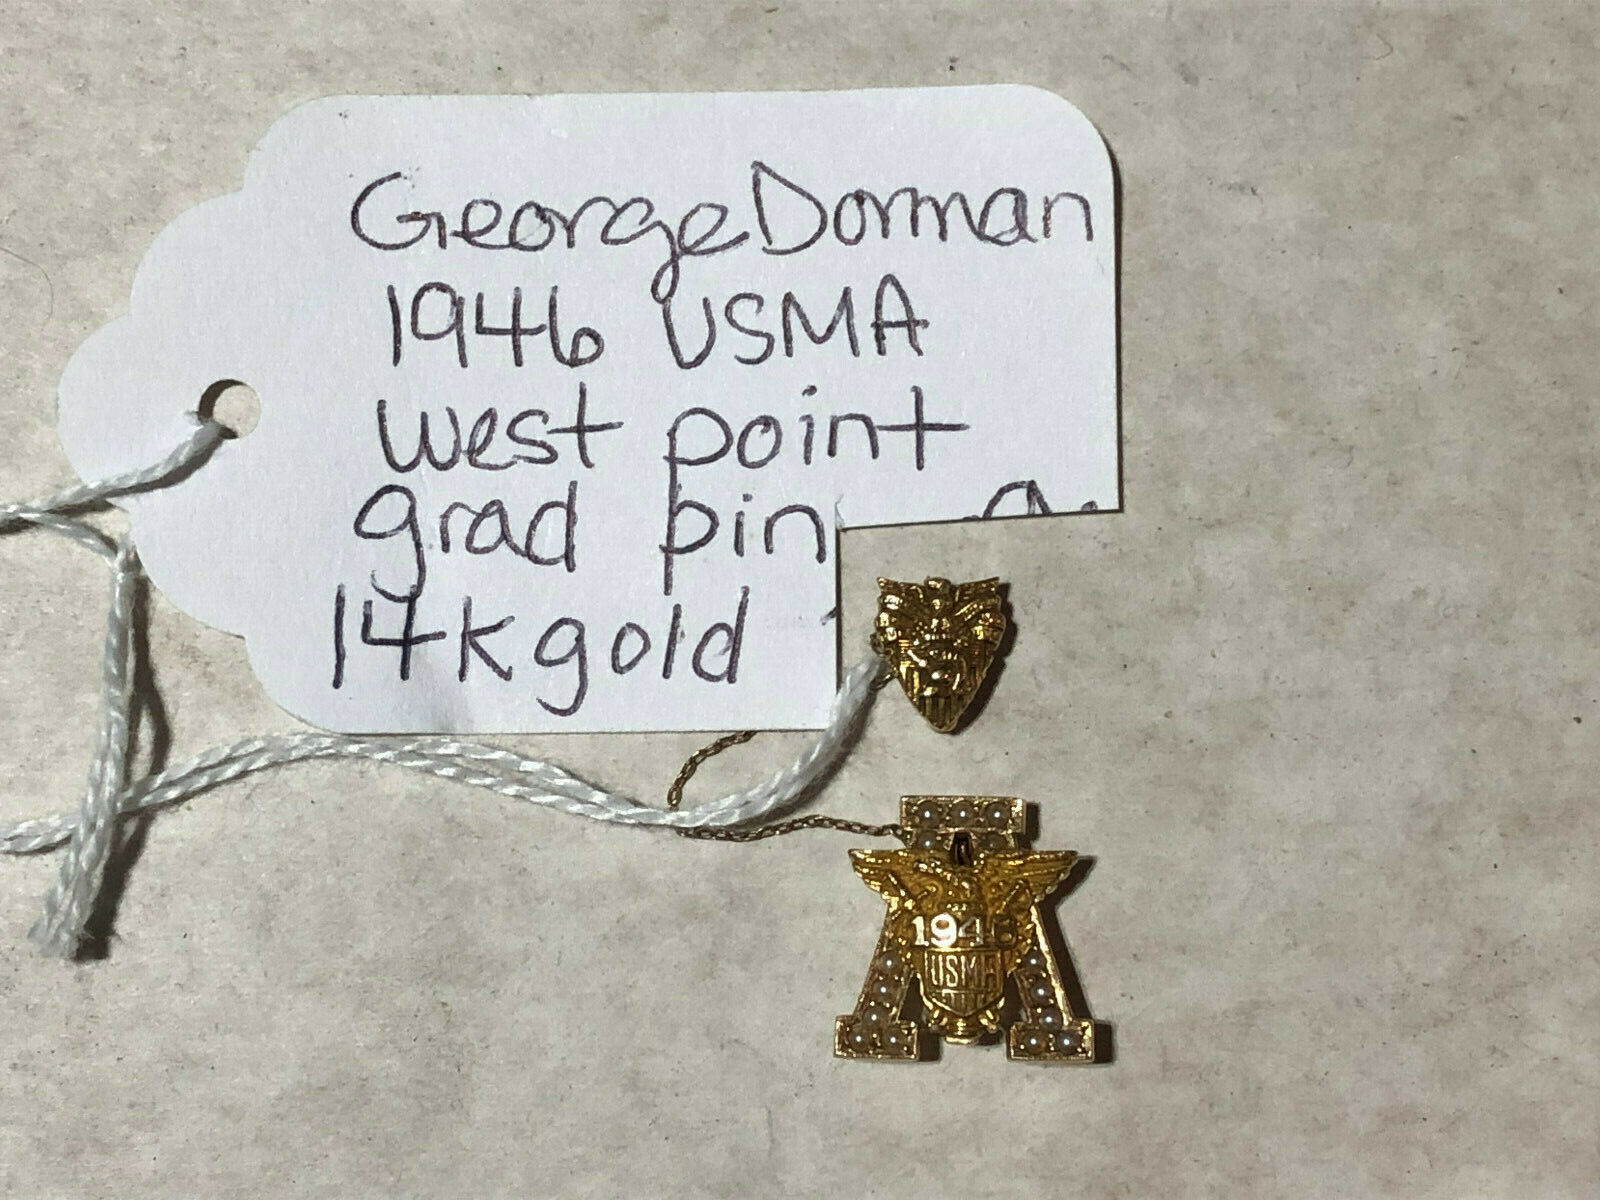 George Dorman
1946 USMA
west point
grad pin
14k gold
1946
USMA